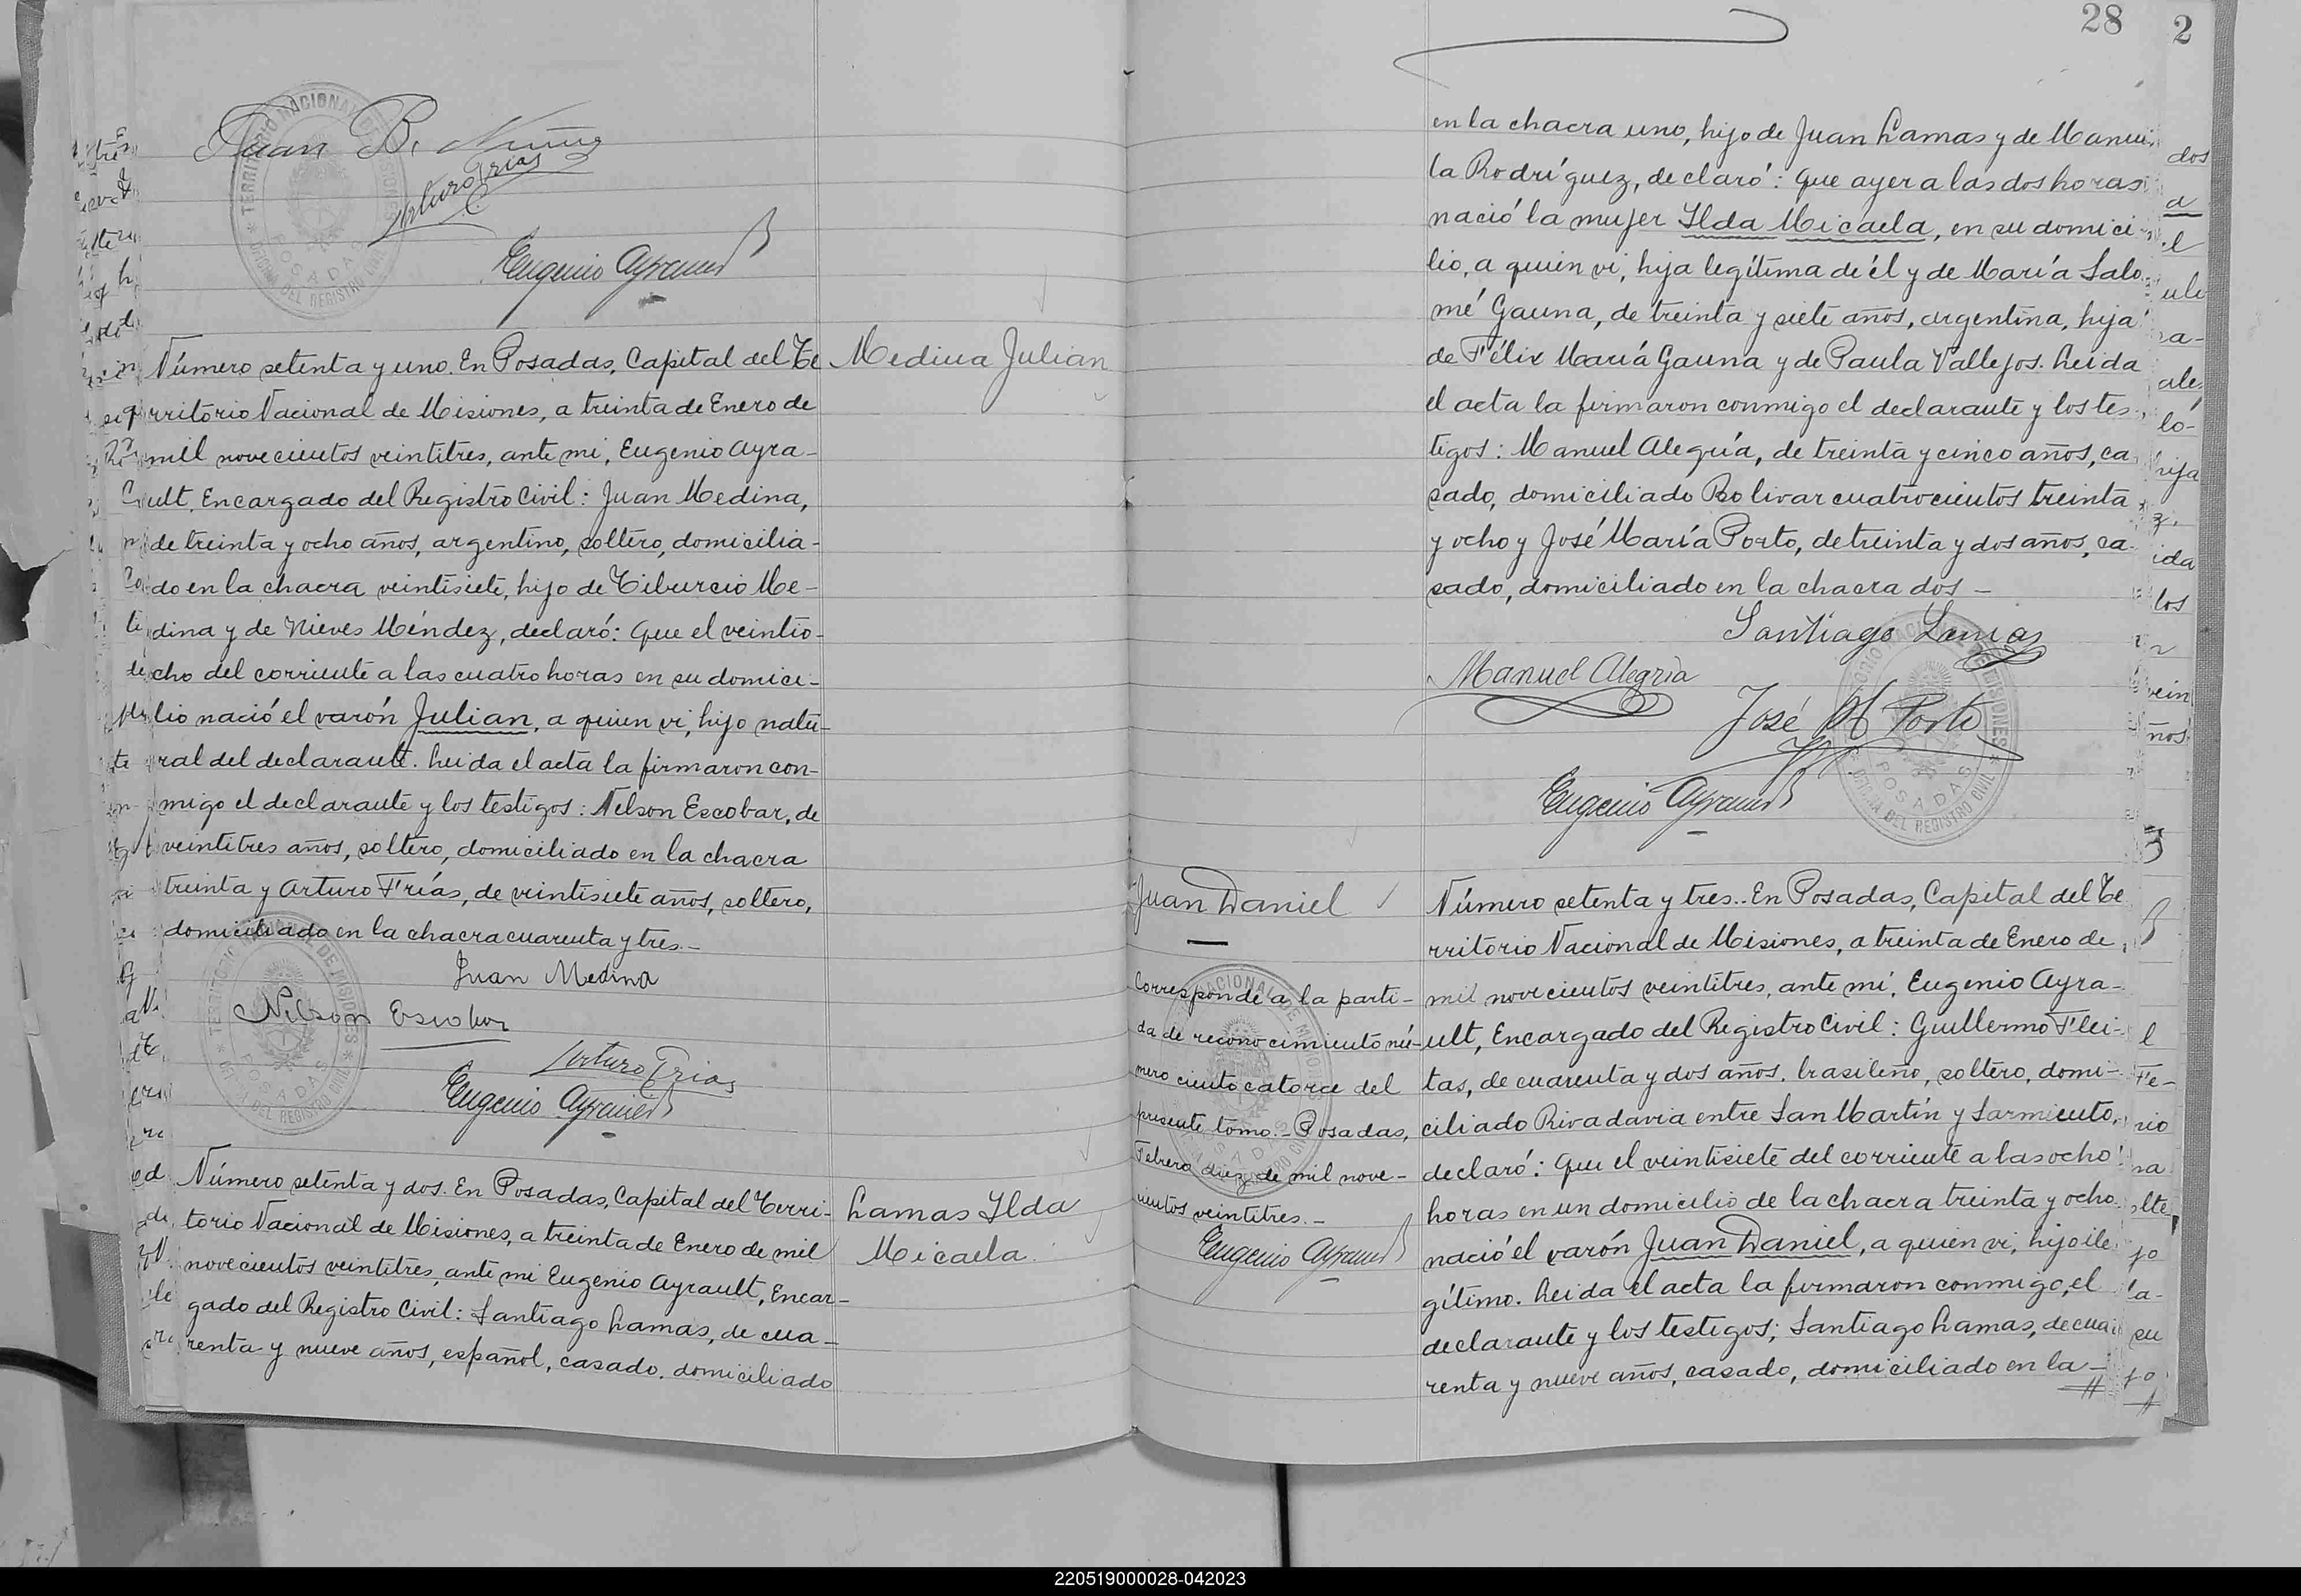 Juan B. Nuñez
Arturo Frías
Eugenio Ayrault
TERRITORIO NACIONAL DE MISIONES
POSADAS
OFICINA DEL REGISTRO CIVIL
Número setenta y uno. En Posadas, Capital del Te
rritorio Nacional de Misiones, a treinta de Enero de
mil novecientos veintitres, ante mi, Eugenio Ayra-
ult, Encargado del Registro Civil: Juan Medina,
de treinta y ocho años, argentino, soltero, domicilia-
do en la chacra veintisiete, hijo de Tiburcio Me-
dina y de Nieves Méndez, declaró: Que el veintio-
cho del corriente a las cuatro horas en su domici-
lio nació el varón Julian, a quien vi, hijo natu-
ral del declarante. Leida el acta la firmaron con-
migo el declarante y los testigos: Nelson Escobar, de
veintitres años, soltero, domiciliado en la chacra
treinta y Arturo Frías, de veintisiete años, soltero,
domiciliado en la chacra cuarenta y tres.-
Medina Julian
Juan Medina
Nelson Escobar
Arturo Frias
Eugenio Ayrault
TERRITORIO NACIONAL DE MISIONES
POSADAS
OFICINA DEL REGISTRO CIVIL
Número setenta y dos. En Posadas, Capital del Terri-
torio Nacional de Misiones, a treinta de Enero de mil
novecientos veintitres, ante mi Eugenio Ayrault, Encar-
gado del Registro Civil: Santiago Lamas, de cua-
renta y nueve años, español, casado, domiciliado
Lamas Ilda
Micaela.
28
2
en la chacra uno, hijo de Juan Lamas y de Manue
la Rodríguez, declaró: Que ayer a las dos horas
nació la mujer Ilda Micaela, en su domici-
lio, a quien vi, hija legítima de él y de María Salo
mé Gauna, de treinta y siete años, argentina, hija
de Félix María Gauna y de Paula Vallejos. Leida
el acta la firmaron conmigo el declarante y los tes
tigos: Manuel Alegría, de treinta y cinco años, ca
sado, domiciliado Bolivar cuatrocientos treinta
y ocho y José María Porto, de treinta y dos años, ca-
sado, domiciliado en la chacra dos -
Santiago Lamas
Manuel Alegría
José M Porto
Eugenio Ayrault
TERRITORIO NACIONAL DE MISIONES
POSADAS
OFICINA DEL REGISTRO CIVIL
Juan Daniel
Corresponde a la parti-
da de reconocimiento nú-
mero ciento catorce del
presente tomo.- Posadas,
Febrero diez de mil nove-
cientos veintitres.-
Eugenio Ayrault
Número setenta y tres.. En Posadas, Capital del Te
rritorio Nacional de Misiones, a treinta de Enero de
mil novecientos veintitres, ante mí, Eugenio Ayra-
ult, Encargado del Registro Civil: Guillermo Flei-
tas, de cuarenta y dos años. brasileño, soltero, domi-
ciliado Rivadavia entre San Martín y Sarmiento,
declaró: Que el veintisiete del corriente a las ocho
horas en un domicilio de la chacra treinta y ocho
nació el varón Juan Daniel, a quien vi, hijo ile
gítimo. Leida el acta la firmaron conmigo, el
declarante y los testigos; Santiago Lamas, de cua
renta y nueve años, casado, domiciliado en la -
220519000028-042023